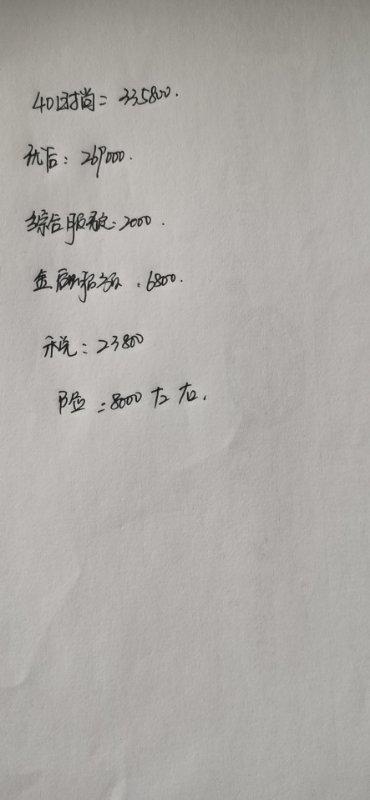 40时尚 = 335800.
优后: 269000.
综合服务: 2000.
金融服务费: 6800.
税: 23800
保险: 8000左右.